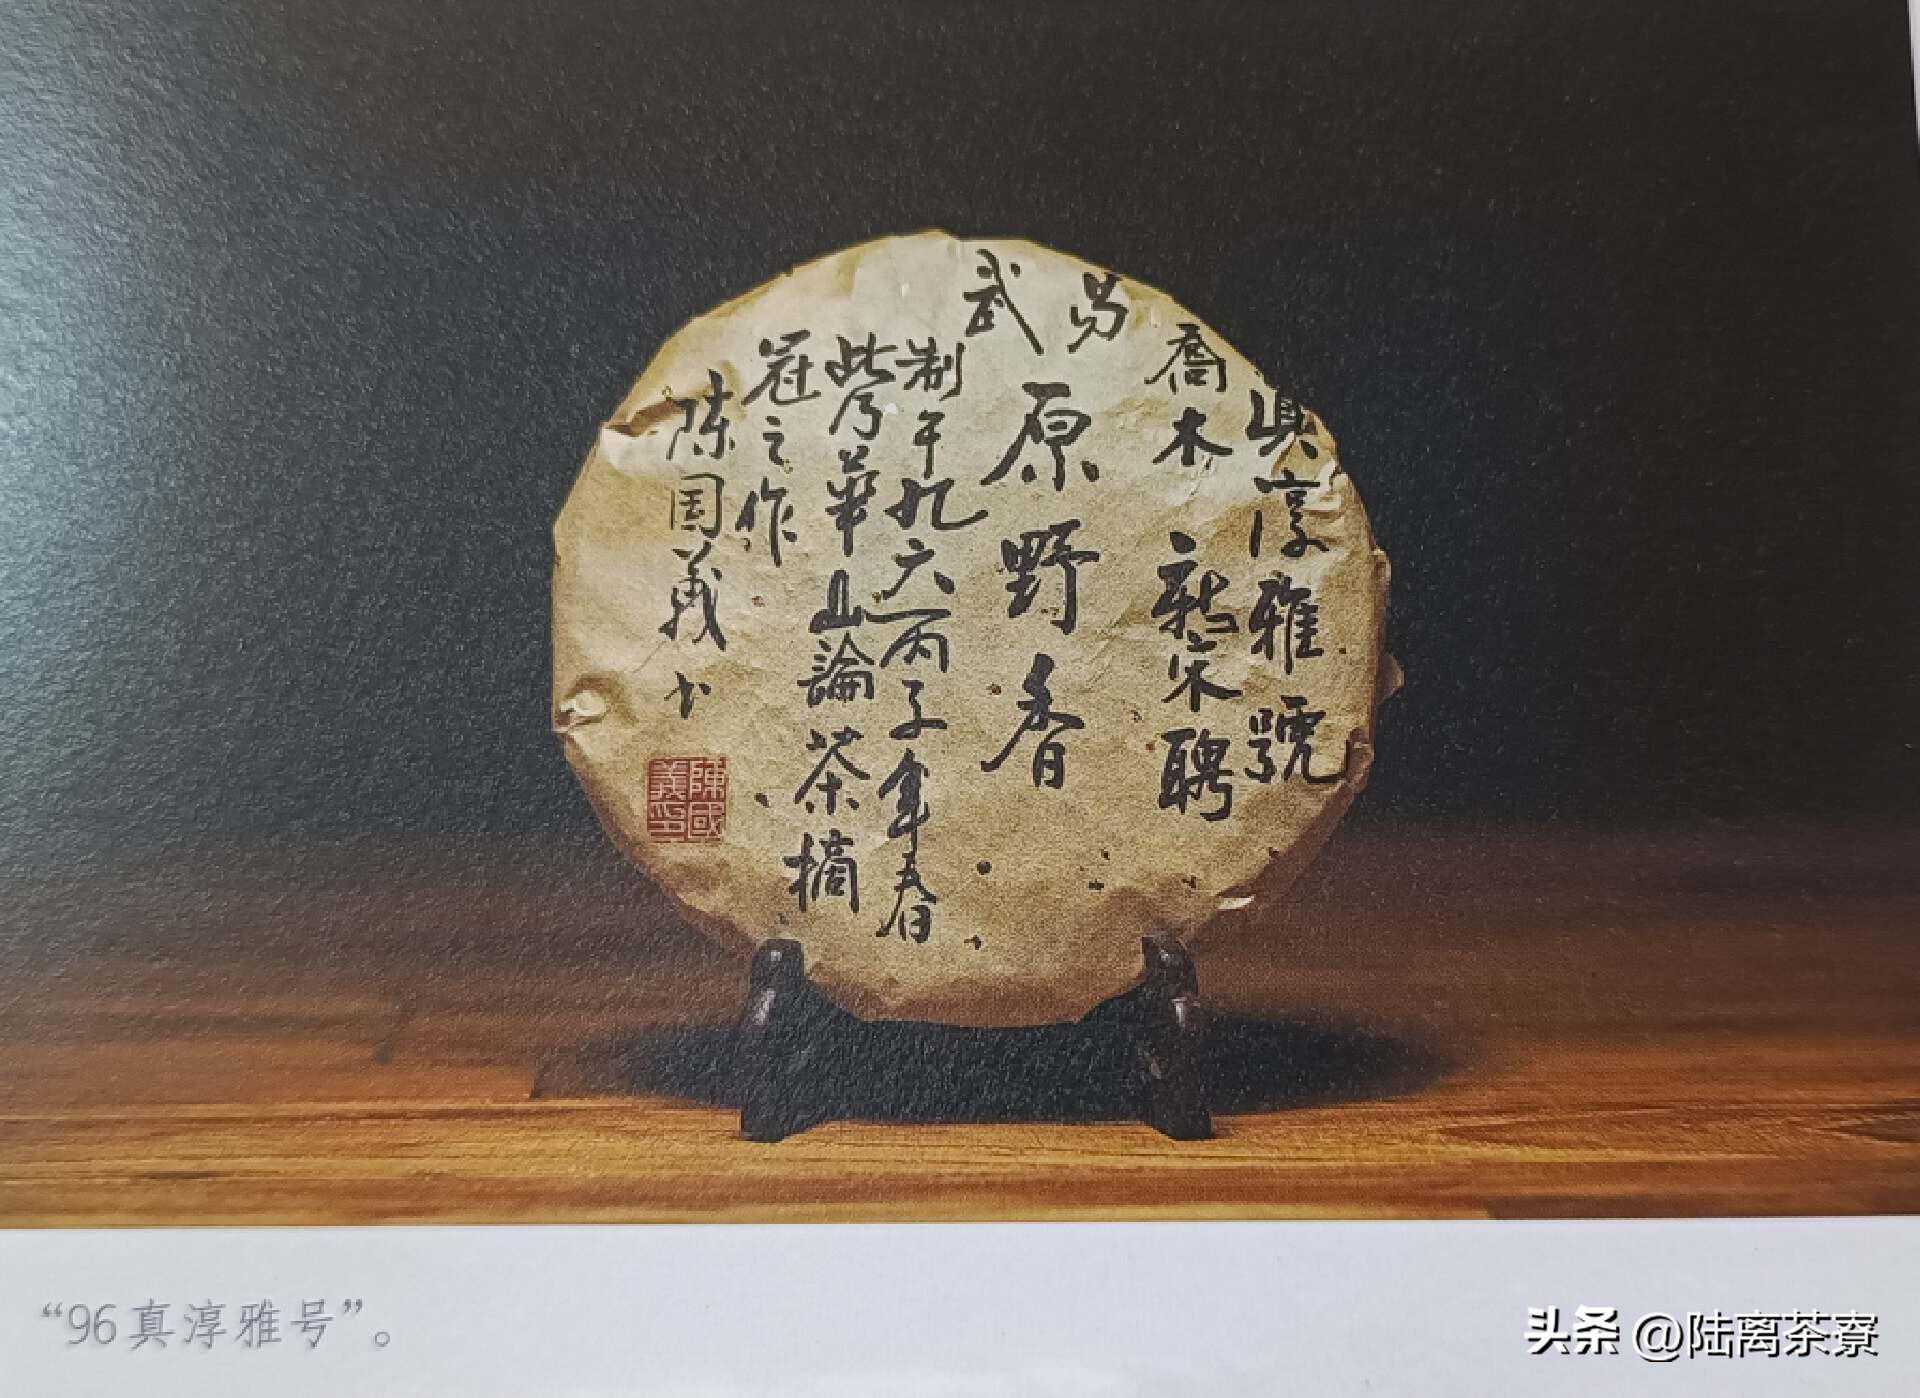 真淳雅號
喬木 宋聘
易武
原野香
制于九六丙子年春
此乃華山論茶摘
冠之作
陈国義书
陳國義印
“96真淳雅号”。
头条 @陆离茶寮